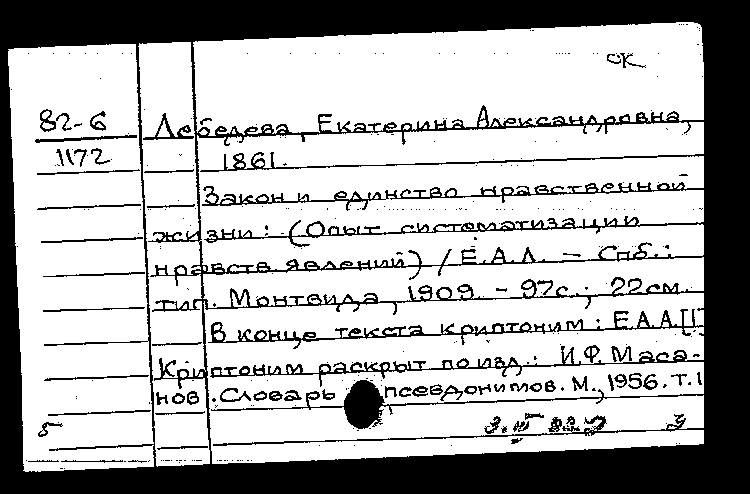 ск
82-6 Лебедева, Екатерина Александровна,
1172 1861.
Закон и единство нравственной
жизни: (Опыт систематизации
нравств. явлений) / Е.А.Л. – Спб.:
тип. Монтвида, 1909. - 97с.; 22см.
В конце текста криптоним: Е.А.Л.[!]
Криптоним раскрыт по изд.: И.Ф. Маса-
нов. Словарь псевдонимов. М., 1956. Т.1
5